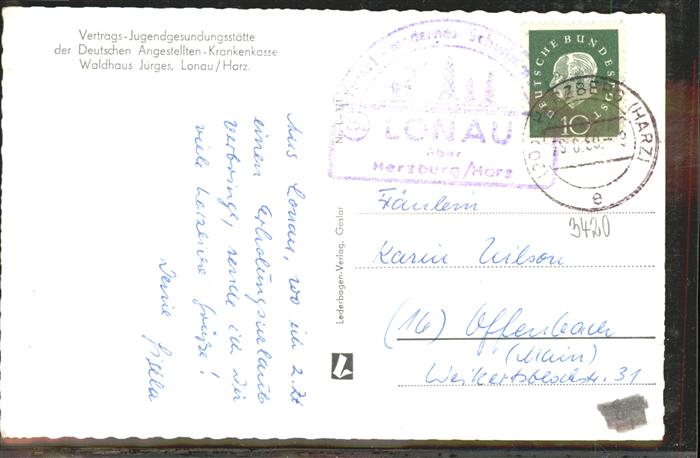 Vertrags-Jugendgesundungsstätte
der Deutschen Angestellten-Krankenkasse
Waldhaus Jürges, Lonau/Harz.
Aus Lonau, wo ich z. Zt
einen Erholungsurlaub
verbringe, sende ich Dir
viele herzliche Grüße!
Deine Gisela
Lederbogen-Verlag, Goslar
modernes
LONAU
über
Herzberg/Harz
DEUTSCHE BUNDESPOST
10
(HARZ)
e
3420
Fräulein
Karin Wilson
(16) Offenbach
(Main)
31